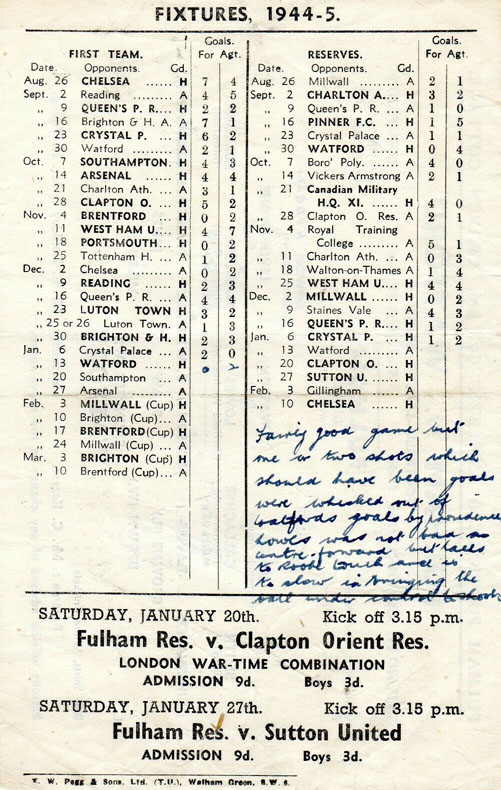 FIXTURES, 1944-5.
FIRST TEAM. Goals.
Date. Opponents. Gd. For Agt.
Aug. 26 CHELSEA ...... H 7 4
Sept. 2 Reading ...... A 4 5
,, 9 QUEEN'S P. R.... H 2 2
,, 16 Brighton & H. A. A 7 1
,, 23 CRYSTAL P. ... H 6 2
,, 30 Watford ...... A 2 1
Oct. 7 SOUTHAMPTON. H 4 3
,, 14 ARSENAL ...... H 4 4
,, 21 Charlton Ath. ... A 3 1
,, 28 CLAPTON O. ... H 5 2
Nov. 4 BRENTFORD ... H 0 2
,, 11 WEST HAM U.... H 4 7
,, 18 PORTSMOUTH... H 0 2
,, 25 Tottenham H. ... A 1 2
Dec. 2 Chelsea ...... A 0 2
,, 9 READING ...... H 2 3
,, 16 Queen's P. R. ... A 4 4
,, 23 LUTON TOWN H 3 2
,, 25 or 26 Luton Town. A 1 3
,, 30 BRIGHTON & H. H 2 3
Jan. 6 Crystal Palace ... A 2 0
,, 13 WATFORD ...... H 0 2
,, 20 Southampton ... A
,, 27 Arsenal ...... A
Feb. 3 MILLWALL (Cup) H
,, 10 Brighton (Cup)... A
,, 17 BRENTFORD (Cup) H
,, 24 Millwall (Cup) ... A
Mar. 3 BRIGHTON (Cup) H
,, 10 Brentford (Cup)... A
RESERVES. Goals.
Date. Opponents. Gd. For Agt.
Aug. 26 Millwall ...... A 2 1
Sept. 2 CHARLTON A.... H 3 2
,, 9 Queen's P. R. ... A 1 0
,, 16 PINNER F.C. ... H 1 5
,, 23 Crystal Palace ... A 1 1
,, 30 WATFORD ... H 0 4
Oct. 7 Boro' Poly. ...... A 4 0
,, 14 Vickers Armstrong A 2 1
,, 21 Canadian Military
H.Q. XI. ...... H 4 0
,, 28 Clapton O. Res. A 2 1
Nov. 4 Royal Training
College ......... A 5 1
,, 11 Charlton Ath. ... A 0 3
,, 18 Walton-on-Thames A 1 4
,, 25 WEST HAM U.... H 4 4
Dec. 2 MILLWALL ... H 0 2
,, 9 Staines Vale ... A 4 3
,, 16 QUEEN'S P. R.... H 1 2
Jan. 6 CRYSTAL P. ... H 1 2
,, 13 Watford ......... A
,, 20 CLAPTON O. ... H
,, 27 SUTTON U. ... H
Feb. 3 Gillingham ...... A
,, 10 CHELSEA ...... H
Fairly good game but
one or two shots which
should have been goals
were whisked out of
watfords goals by providence
howes was not bad as
centre-forward but lacks
to touch and is
to slow in bringing the
ball under control &
SATURDAY, JANUARY 20th. Kick off 3.15 p.m.
Fulham Res. v. Clapton Orient Res.
LONDON WAR-TIME COMBINATION
ADMISSION 9d. Boys 3d.
SATURDAY, JANUARY 27th. Kick off 3.15 p.m.
Fulham Res. v. Sutton United
ADMISSION 9d. Boys 3d.
T. W. Pegg & Sons. Ltd. (T.U.), Walham Green, S.W.6.